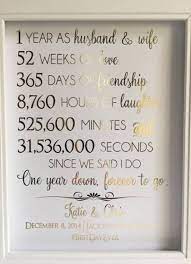 1 YEAR AS husband & wife
52 WEEKS OF love
365 DAYS OF friendship
8,760 HOURS OF laughter
525,600 MINUTES
31,536,000 SECONDS
SINCE WE SAID I DO
One year down, forever to go.
Katie & Chris
DECEMBER 6, 2014 |